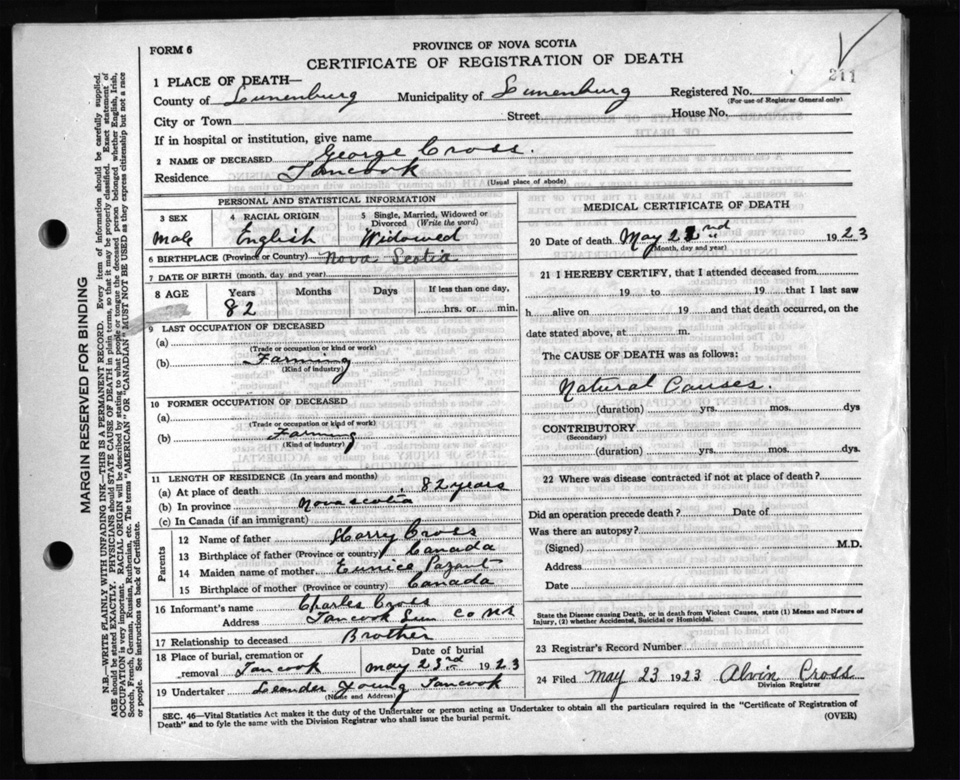 FORM 6
PROVINCE OF NOVA SCOTIA
CERTIFICATE OF REGISTRATION OF DEATH
211
1 PLACE OF DEATH—
County of Lunenburg Municipality of Lunenburg Registered No.
(For use of Registrar General only)
City or Town Street House No.
If in hospital or institution, give name
2 NAME OF DECEASED George Cross.
Residence Tancook
(Usual place of abode)
PERSONAL AND STATISTICAL INFORMATION
3 SEX 4 RACIAL ORIGIN 5 Single, Married, Widowed or Divorced (Write the word)
Male English Widowed
6 BIRTHPLACE (Province or Country) Nova Scotia
7 DATE OF BIRTH (month, day, and year)
8 AGE Years Months Days If less than one day,
82 hrs. or min.
9 LAST OCCUPATION OF DECEASED
(a)
(Trade or occupation or kind of work)
(b) Farming
(Kind of industry)
10 FORMER OCCUPATION OF DECEASED
(a)
(Trade or occupation or kind of work)
(b) Farming
(Kind of industry)
11 LENGTH OF RESIDENCE (In years and months)
(a) At place of death 82 years
(b) In province Nova Scotia
(c) In Canada (if an immigrant)
Parents
12 Name of father Harry Cross
13 Birthplace of father (Province or country) Canada
14 Maiden name of mother Eunice Pazant
15 Birthplace of mother (Province or country) Canada
16 Informant's name Charles Cross
Address Tancook Lun Co NS
17 Relationship to deceased Brother
18 Place of burial, cremation or removal Tancook Date of burial May 23rd 1923
19 Undertaker Leander Young Tancook
(Name and Address)
MEDICAL CERTIFICATE OF DEATH
20 Date of death May 22nd 1923
(Month, day and year)
21 I HEREBY CERTIFY, that I attended deceased from
19 to 19 that I last saw
h alive on 19 and that death occurred, on the
date stated above, at m.
The CAUSE OF DEATH was as follows:
Natural Causes.
(duration) yrs. mos. dys
CONTRIBUTORY
(Secondary)
(duration) yrs. mos. dys.
22 Where was disease contracted if not at place of death?
Did an operation precede death? Date of
Was there an autopsy?
(Signed) M.D.
Address
Date
State the Disease causing Death, or in death from Violent Causes, state (1) Means and Nature of Injury, (2) whether Accidental, Suicidal or Homicidal.
23 Registrar's Record Number
24 Filed May 23 1923 Alvin Cross
Division Registrar
SEC. 46—Vital Statistics Act makes it the duty of the Undertaker or person acting as Undertaker to obtain all the particulars required in the "Certificate of Registration of
Death" and to fyle the same with the Division Registrar who shall issue the burial permit.
(OVER)
MARGIN RESERVED FOR BINDING
N.B.—WRITE PLAINLY WITH UNFADING INK—THIS IS A PERMANENT RECORD. Every item of information should be carefully supplied.
AGE should be stated EXACTLY. PHYSICIANS should STATE CAUSE OF DEATH in plain terms, so that it may be properly classified. Exact statement of
OCCUPATION is very important. RACIAL ORIGIN will be described by stating to what people or tongue the deceased person belonged whether English, Irish,
Scotch, French, German, Russian, Ruthenian, etc. The terms "AMERICAN" OR "CANADIAN" MUST NOT BE USED as they express citizenship but not a race
or people. See instructions on back of Certificate.